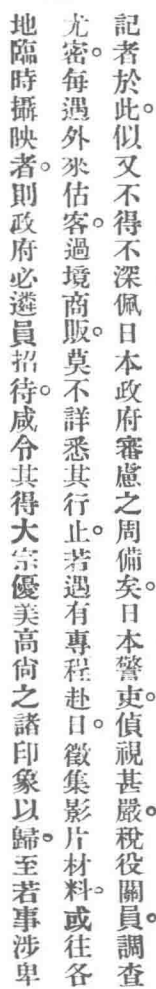 記者於此。似又不得不深佩日本政府審慮之周備矣。日本警吏。偵視甚嚴。稅役關員。調查
尤密。每遇外來估客。過境商販。莫不詳悉其行止。若遇有專程赴日。徵集影片材料。或往各
地臨時攝映者。則政府必遴員招待。咸令其得大宗優美高尙之諸印象以歸。至若事涉卑